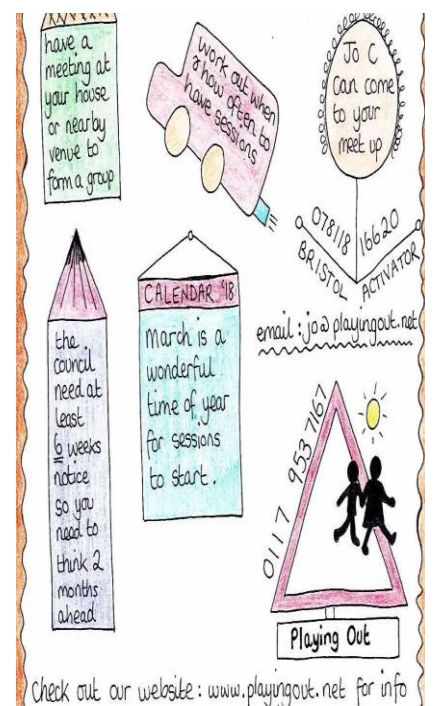 have a
meeting at
your house
or nearby
venue to
form a group
work out when
& how often to
have sessions
Jo C
can come
to your
meet up
078118 16620
BRISTOL ACTIVATOR
email: jo@playingout.net
the
council
need at
least
6 weeks
notice
so you
need to
think 2
months
ahead
CALENDAR '18
March is a
wonderful
time of year
for sessions
to start.
0117 953 7167
Playing Out
Check out our website: www.playingout.net for info